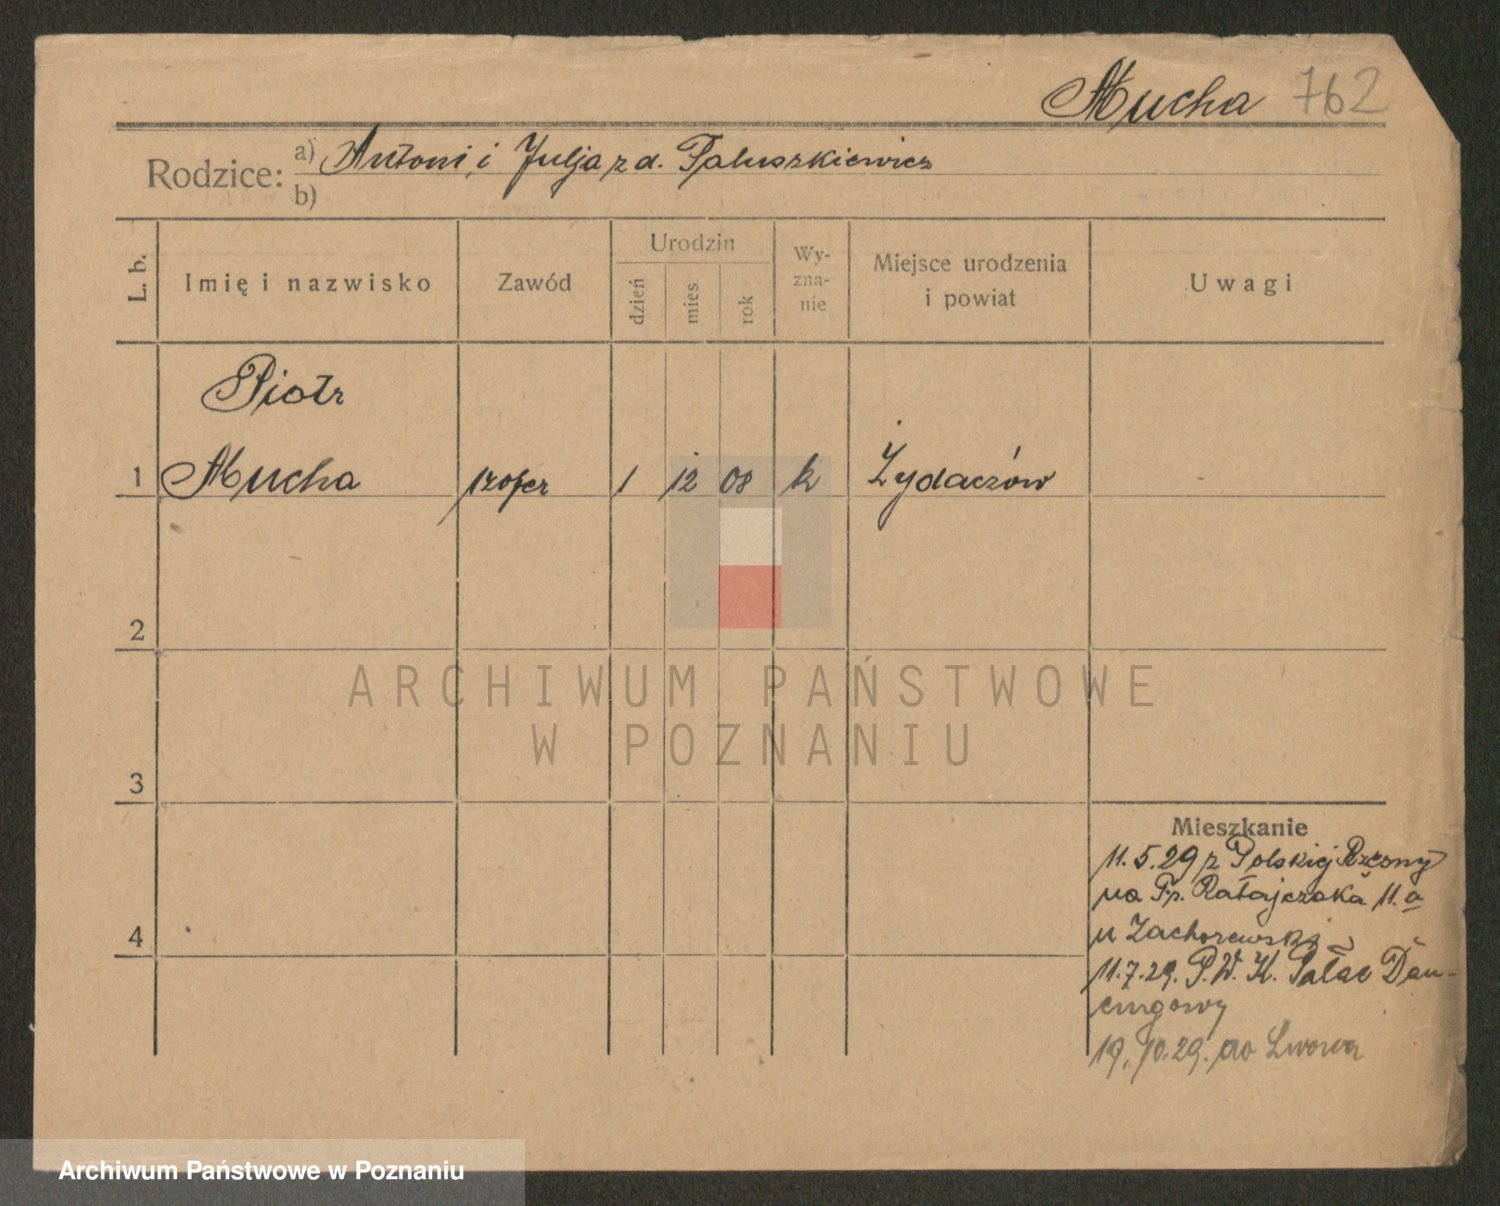 Mucha 762
Rodzice: a) Antoni i Julja z d. Paluszkiewicz
b)
L. b.
Imię i nazwisko
Zawód
Urodzin
dzień
mies.
rok
Wy-
zna-
nie
Miejsce urodzenia
i powiat
Uwagi
Piotr
1 Mucha szofer 1 12 08 k Żydaczów
2
ARCHIWUM PAŃSTWOWE
W POZNANIU
3
Mieszkanie
11.5.29 z Polskiej
na Fr. Ratajczaka 11.a
4
u
11.7.29. P.W.K. Pałac Dan-
cingowy
19.10.29. do Lwowa
Archiwum Państwowe w Poznaniu